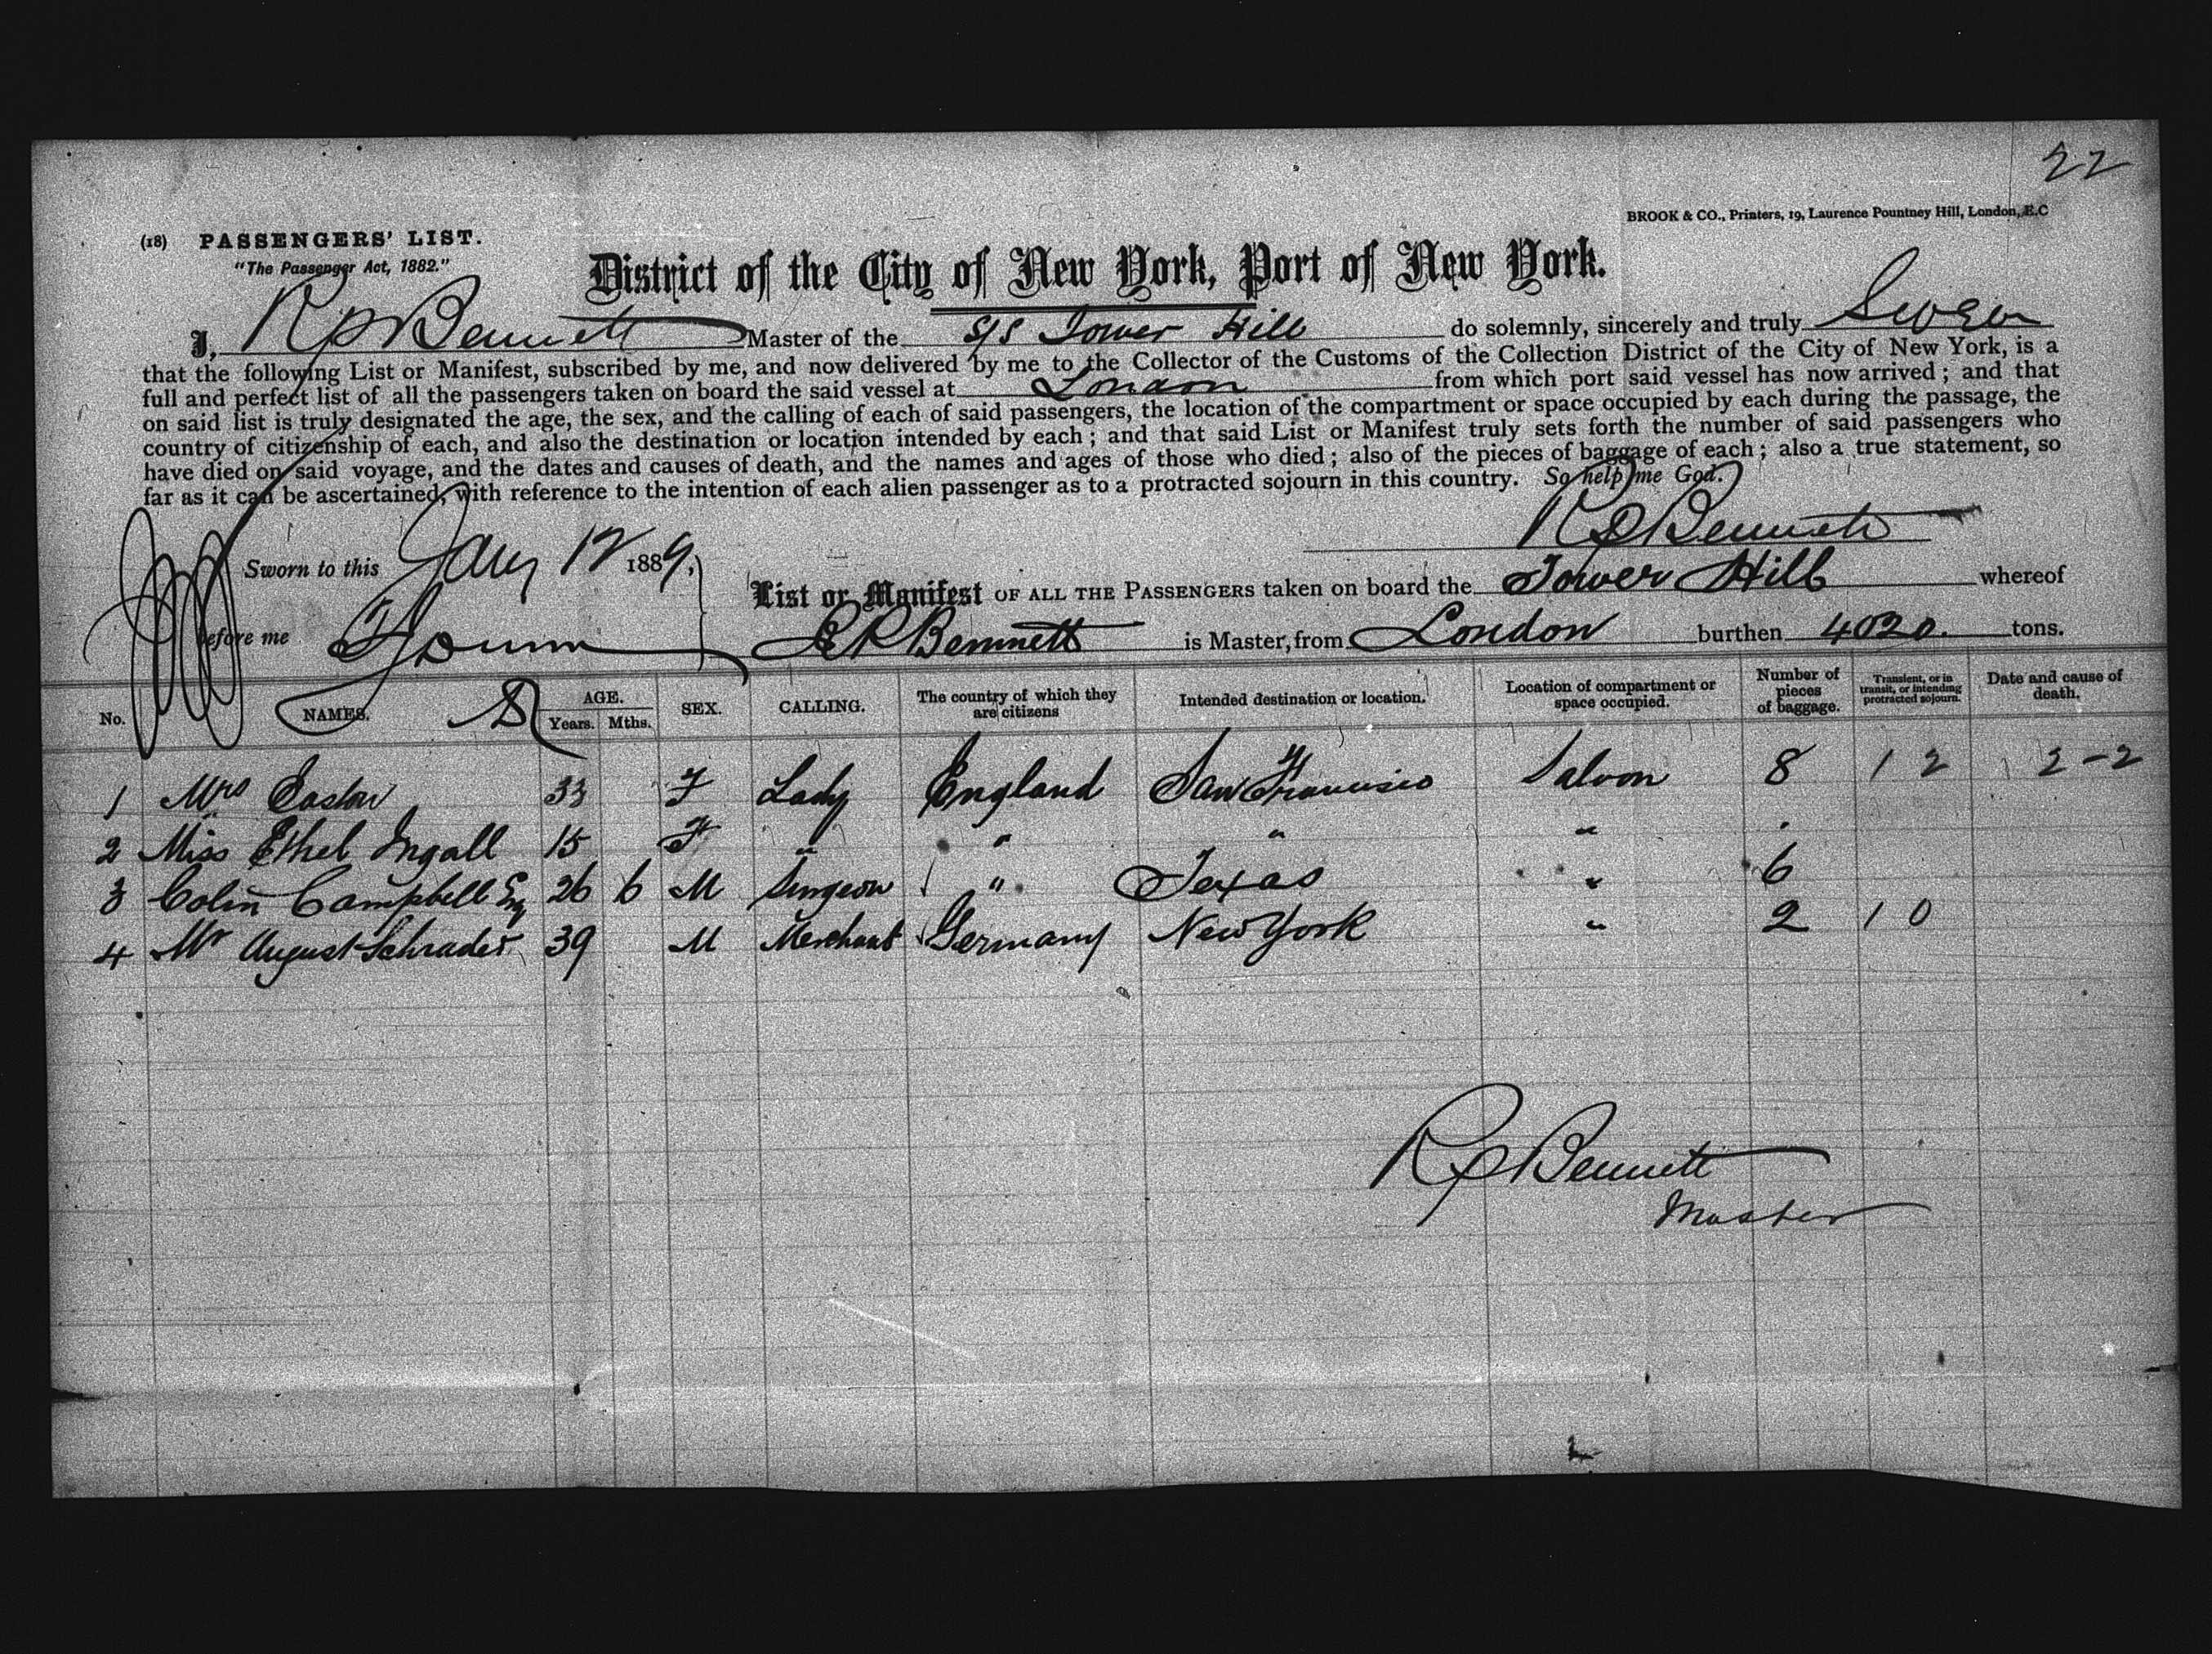 22
BROOK & CO., Printers, 19, Laurence Pountney Hill, London, E.C
(18) PASSENGERS' LIST.
"The Passenger Act, 1882."
District of the City of New York, Port of New York.
I, R P Bennett Master of the S/S Tower Hill do solemnly, sincerely and truly Swear
that the following List or Manifest, subscribed by me, and now delivered by me to the Collector of the Customs of the Collection District of the City of New York, is a
full and perfect list of all the passengers taken on board the said vessel at London from which port said vessel has now arrived; and that
on said list is truly designated the age, the sex, and the calling of each of said passengers, the location of the compartment or space occupied by each during the passage, the
country of citizenship of each, and also the destination or location intended by each; and that said List or Manifest truly sets forth the number of said passengers who
have died on said voyage, and the dates and causes of death, and the names and ages of those who died; also of the pieces of baggage of each; also a true statement, so
far as it can be ascertained, with reference to the intention of each alien passenger as to a protracted sojourn in this country. So help me God.
R P Bennett
Sworn to this Jany 12 1889,
List or Manifest OF ALL THE PASSENGERS taken on board the Tower Hill whereof
before me
Bennett is Master, from London burthen 4020 tons.
No. NAMES. AGE. Years. Mths. SEX. CALLING. The country of which they are citizens Intended destination or location. Location of compartment or space occupied. Number of pieces of baggage. Transient, or in transit, or intending protracted sojourn. Date and cause of death.
1 Mrs Easton 33 F Lady England San Francisco Saloon 8 1 2 2-2
2 Miss Ethel Ingall 15 F " " " "
3 Colin Campbell Esq 26 6 M Surgeon " Texas " 6
4 Mr August Schrader 39 M Merchant Germany New York " 2 1 0
R P Bennett
Master